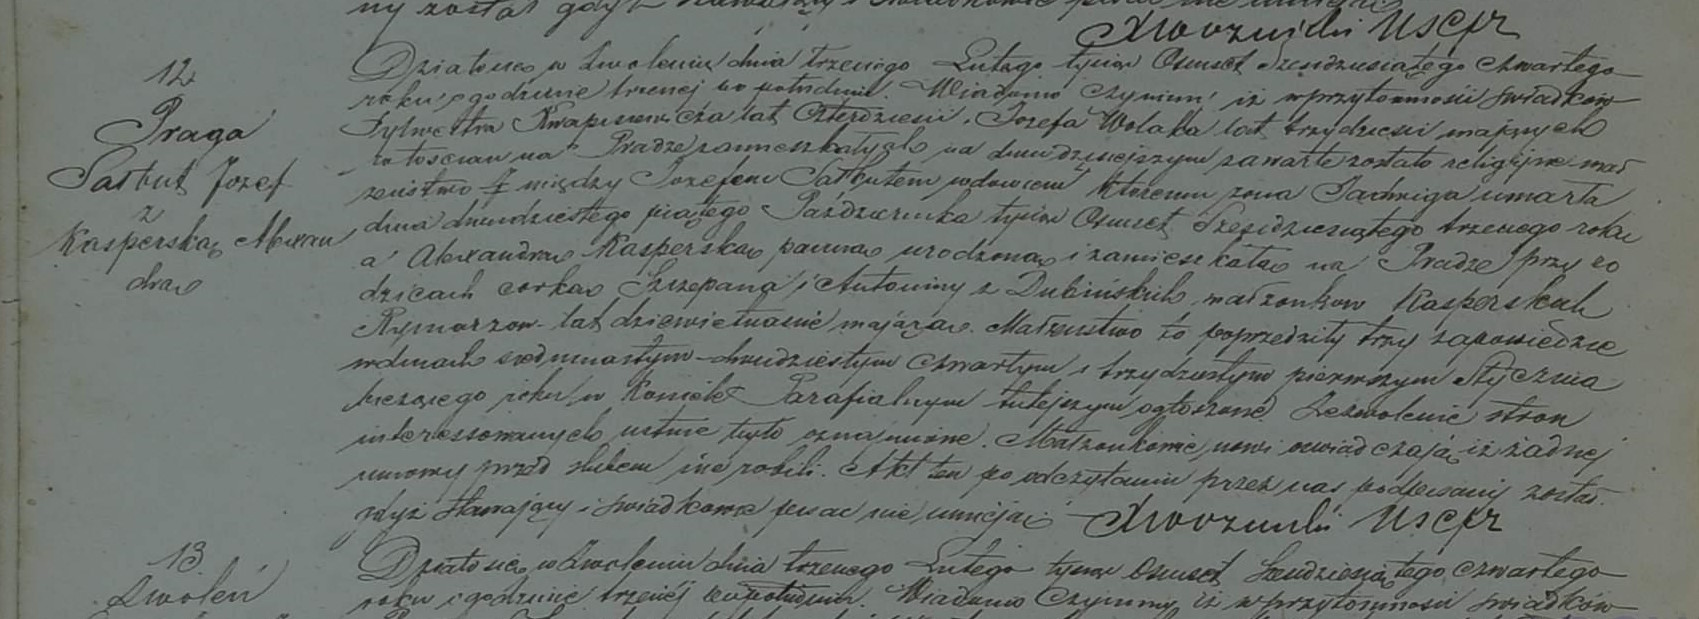 ny został gdyż
Mrozuński USCpr
12
Praga
Sałbut Józef
z
Kasperską Alexan
drą
Działo się w Zwoleniu dnia trzeciego Lutego tysiąc Ośmset Sześdziesiątego czwartego
roku o godzinie trzeciej po południu. Wiadomo czynimy iż w przytomności świadków
Sylwestra Knapiewicza lat czterdzieści, Józefa Wolaka lat trzydzieści mających
włościan na Pradze zamieszkałych na dniu dzisiejszym zawarte zostało religijne mał
żeństwo między Józefem Sałbutem wdowcem któremu żona Jadwiga umarła
dnia dwudziestego piątego Października tysiąc Ośmset Sześdziesiątego trzeciego roku
a Alexandrą Kasperską panną urodzoną i zamieszkałą na Pradze przy ro
dzicach córką Szczepana i Antoniny z Dubińskich małżonków Kasperskich
Rymarzów lat dziewietnaście mającą. Małżeństwo to poprzedziły trzy zapowiedzie
w dniach siedmnastym dwudziestym czwartym i trzydziestym pierwszym Stycznia
bieżącego roku w Kościele Parafialnym tutejszym ogłoszone. Zezwolenie stron
interessowanych ustnie było oznajmione. Małżonkowie nowi oświadczają iż żadnej
umowy przed ślubem nie robili. Akt ten po odczytaniu przez nas podpisany został
gdyż Stawający i świadkowie pisać nie umieją
Mrozuński USCpr
13
Zwoleń
Działo się w Zwoleniu dnia trzeciego Lutego tysiąc Ośmset Sześdziesiątego czwartego
roku o godzinie trzeciej po południu. Wiadomo Czynimy iż w przytomności świadków